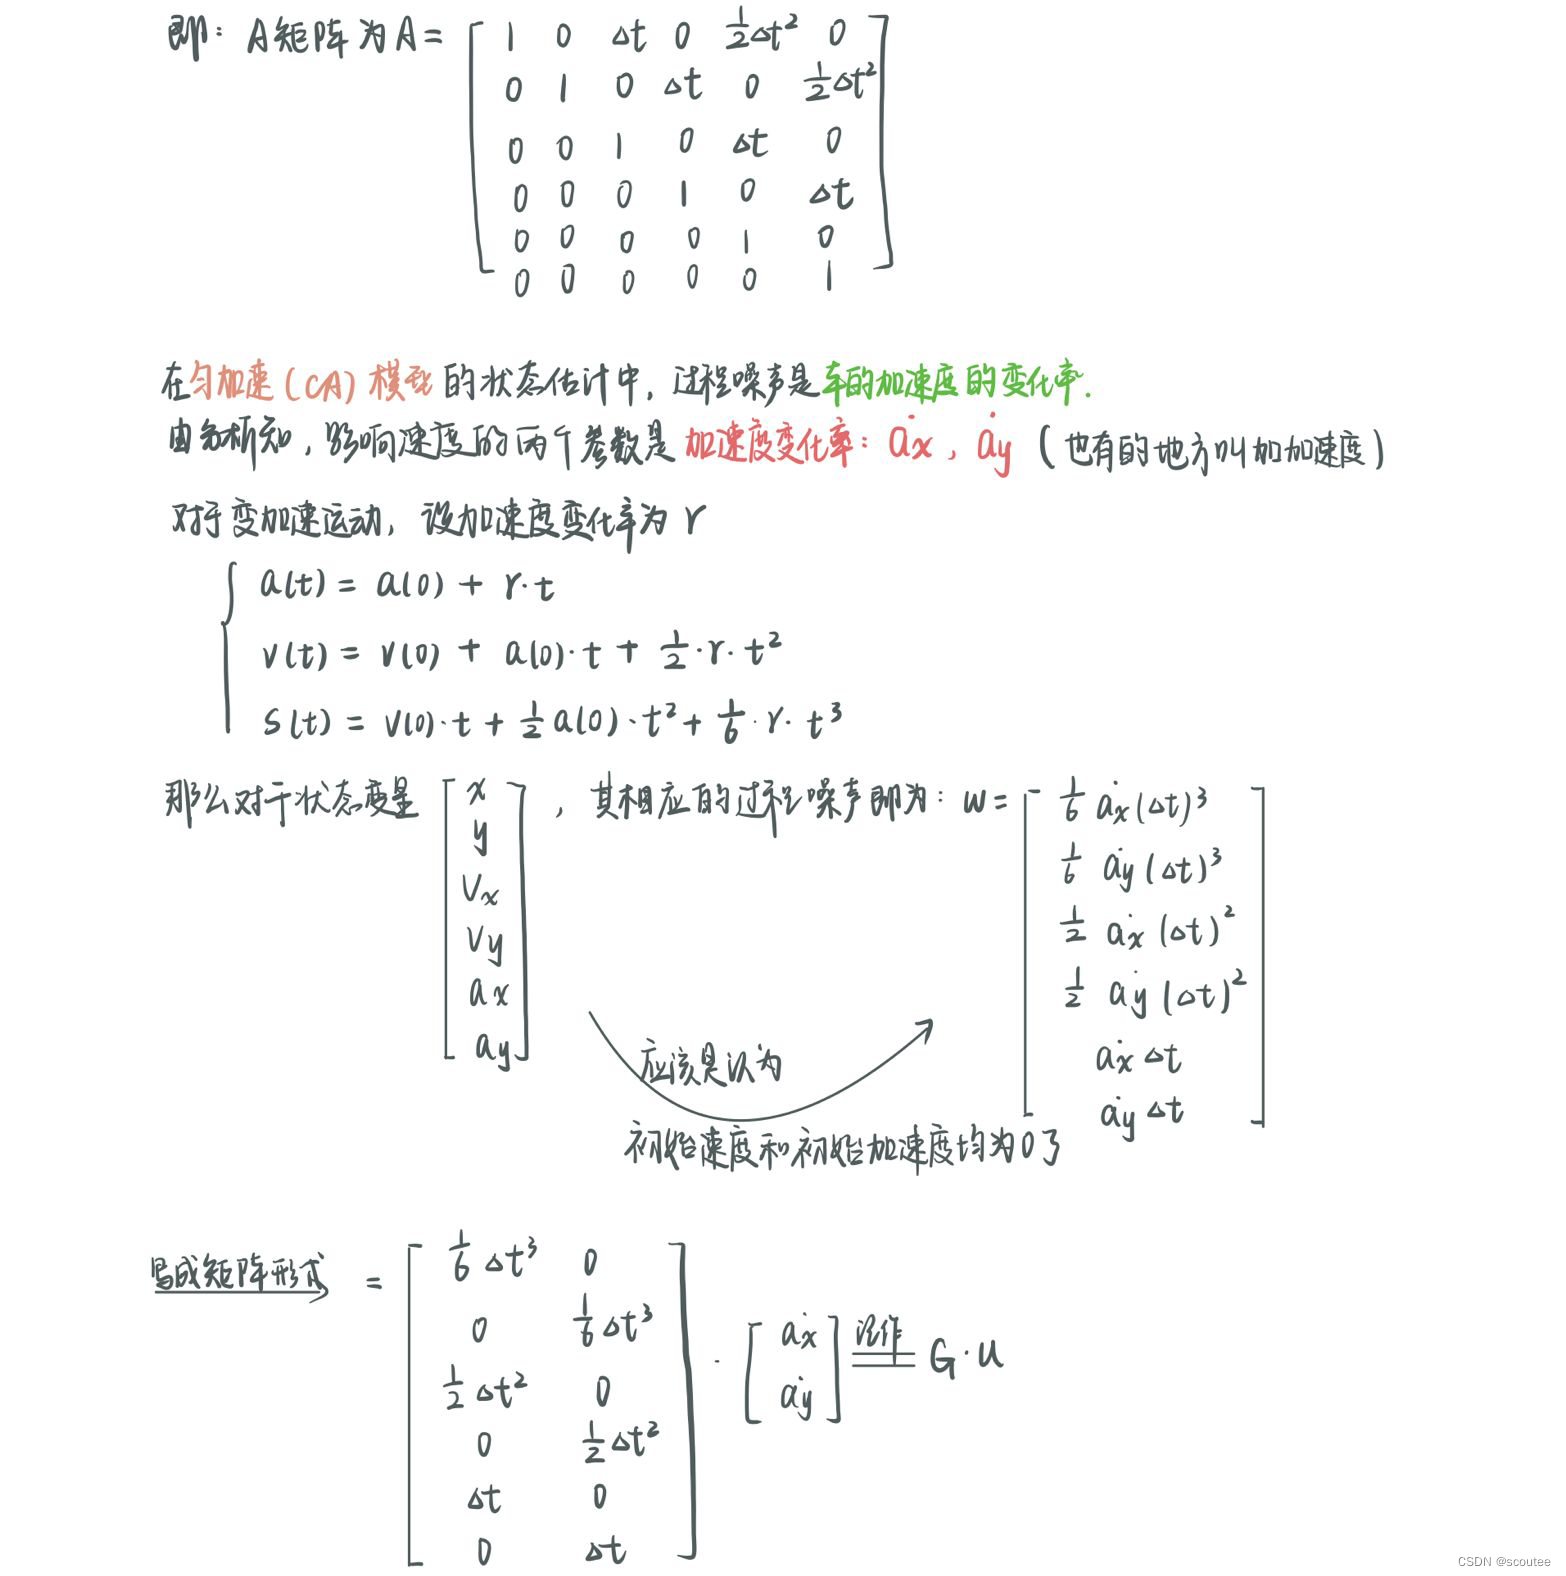 即: A矩阵为A= [ 1 0 Δt 0 ½Δt² 0
0 1 0 Δt 0 ½Δt²
0 0 1 0 Δt 0
0 0 0 1 0 Δt
0 0 0 0 1 0
0 0 0 0 0 1 ]
在匀加速(CA)模型的状态估计中, 过程噪声是车的加速度的变化率.
由分析知, 影响速度的两个参数是 加速度变化率: ȧx, ȧy (也有的地方叫加加速度)
对于变加速运动, 设加速度变化率为 r
{ a(t) = a(0) + r·t
v(t) = v(0) + a(0)·t + ½·r·t²
s(t) = v(0)·t + ½a(0)·t² + 1/6·r·t³
那么对于状态变量 [ x y Vx Vy ax ay ] , 其相应的过程噪声即为: w= [ 1/6 ȧx(Δt)³
1/6 ȧy(Δt)³
½ ȧx(Δt)²
½ ȧy(Δt)²
ȧx Δt
ȧy Δt ]
应该是认为
初始速度和初始加速度均为0了
写成矩阵形式 = [ 1/6 Δt³ 0
0 1/6 Δt³
½ Δt² 0
0 ½ Δt²
Δt 0
0 Δt ] · [ ȧx ȧy ] 记作 G·u
CSDN @scoutee